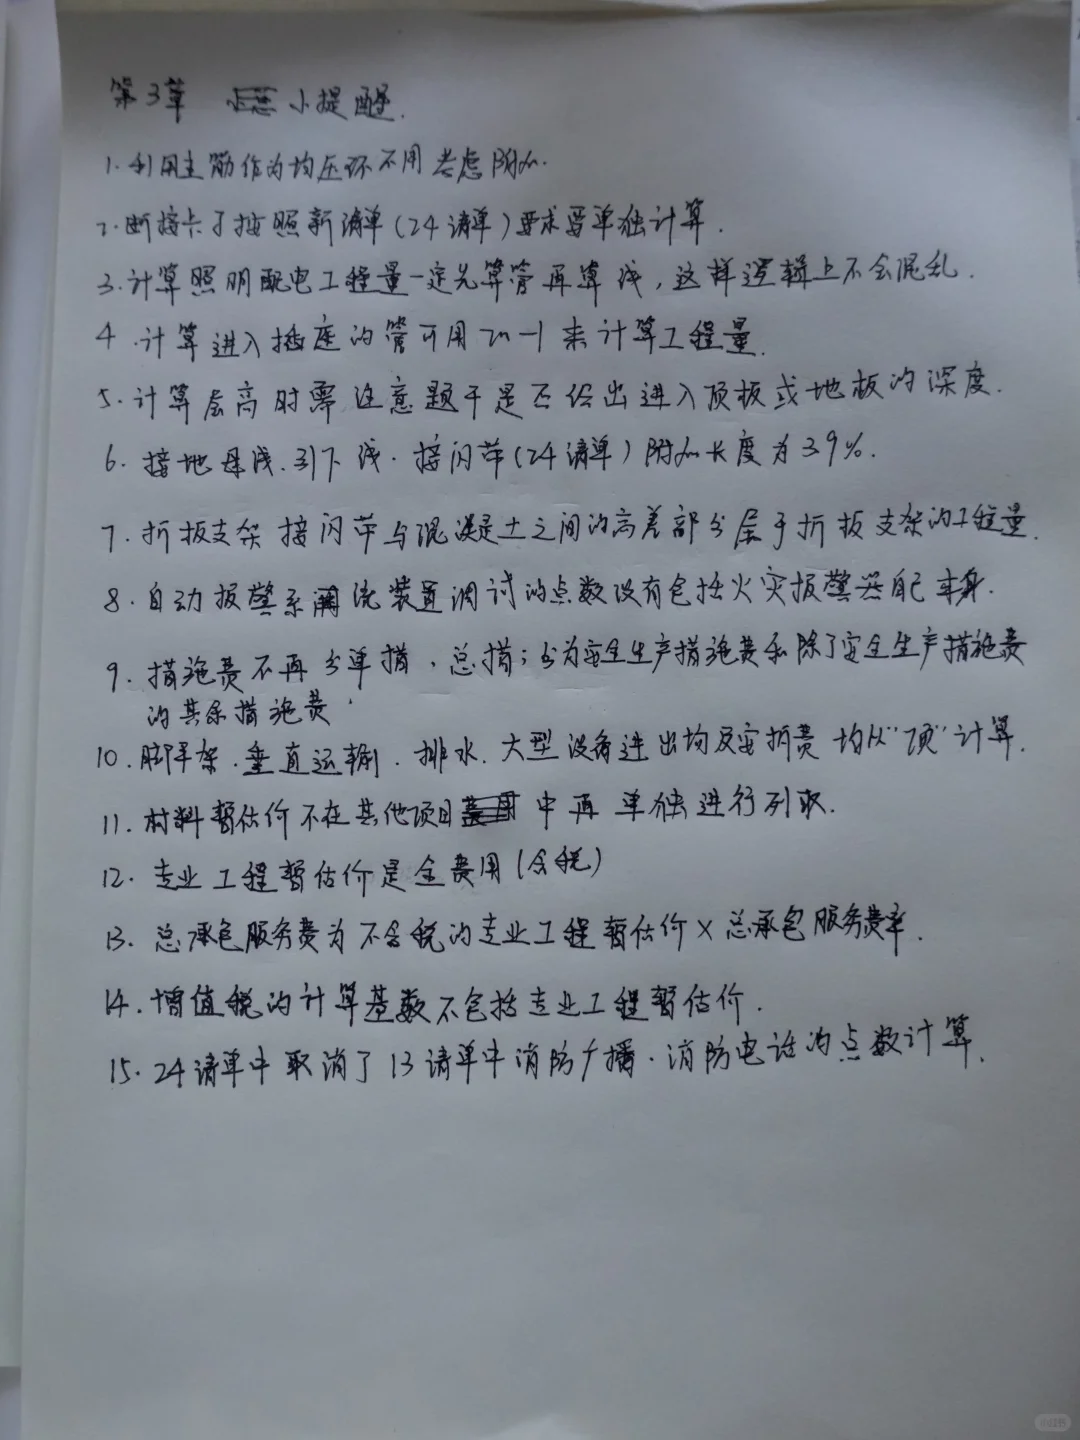 第3章 小提醒.
1.利用主筋作为均压环不用考虑附加.
2.断接卡子按照新清单(24清单)要求要单独计算.
3.计算照明配电工程量一定先算管再算线,这样逻辑上不会混乱.
4.计算进入插座的管可用2n-1来计算工程量.
5.计算层高时需注意题干是否给出进入顶板或地板的深度.
6.接地母线.引下线.接闪带(24清单)附加长度为3.9%.
7.折板支架接闪带与混凝土之间的高差部分属于折板支架的工程量.
8.自动报警系统装置调试的点数没有包括火灾报警器自己本身.
9.措施费不再分单措、总措;分为安全生产措施费和除了安全生产措施费
的其余措施费.
10.脚手架.垂直运输.排水.大型设备进出均及安拆费均从"项"计算.
11.材料暂估价不在其他项目中再单独进行列取.
12.专业工程暂估价是全费用(含税)
13.总承包服务费为不含税的专业工程暂估价×总承包服务费率.
14.增值税的计算基数不包括专业工程暂估价.
15.24清单中取消了13清单中消防广播.消防电话的点数计算.